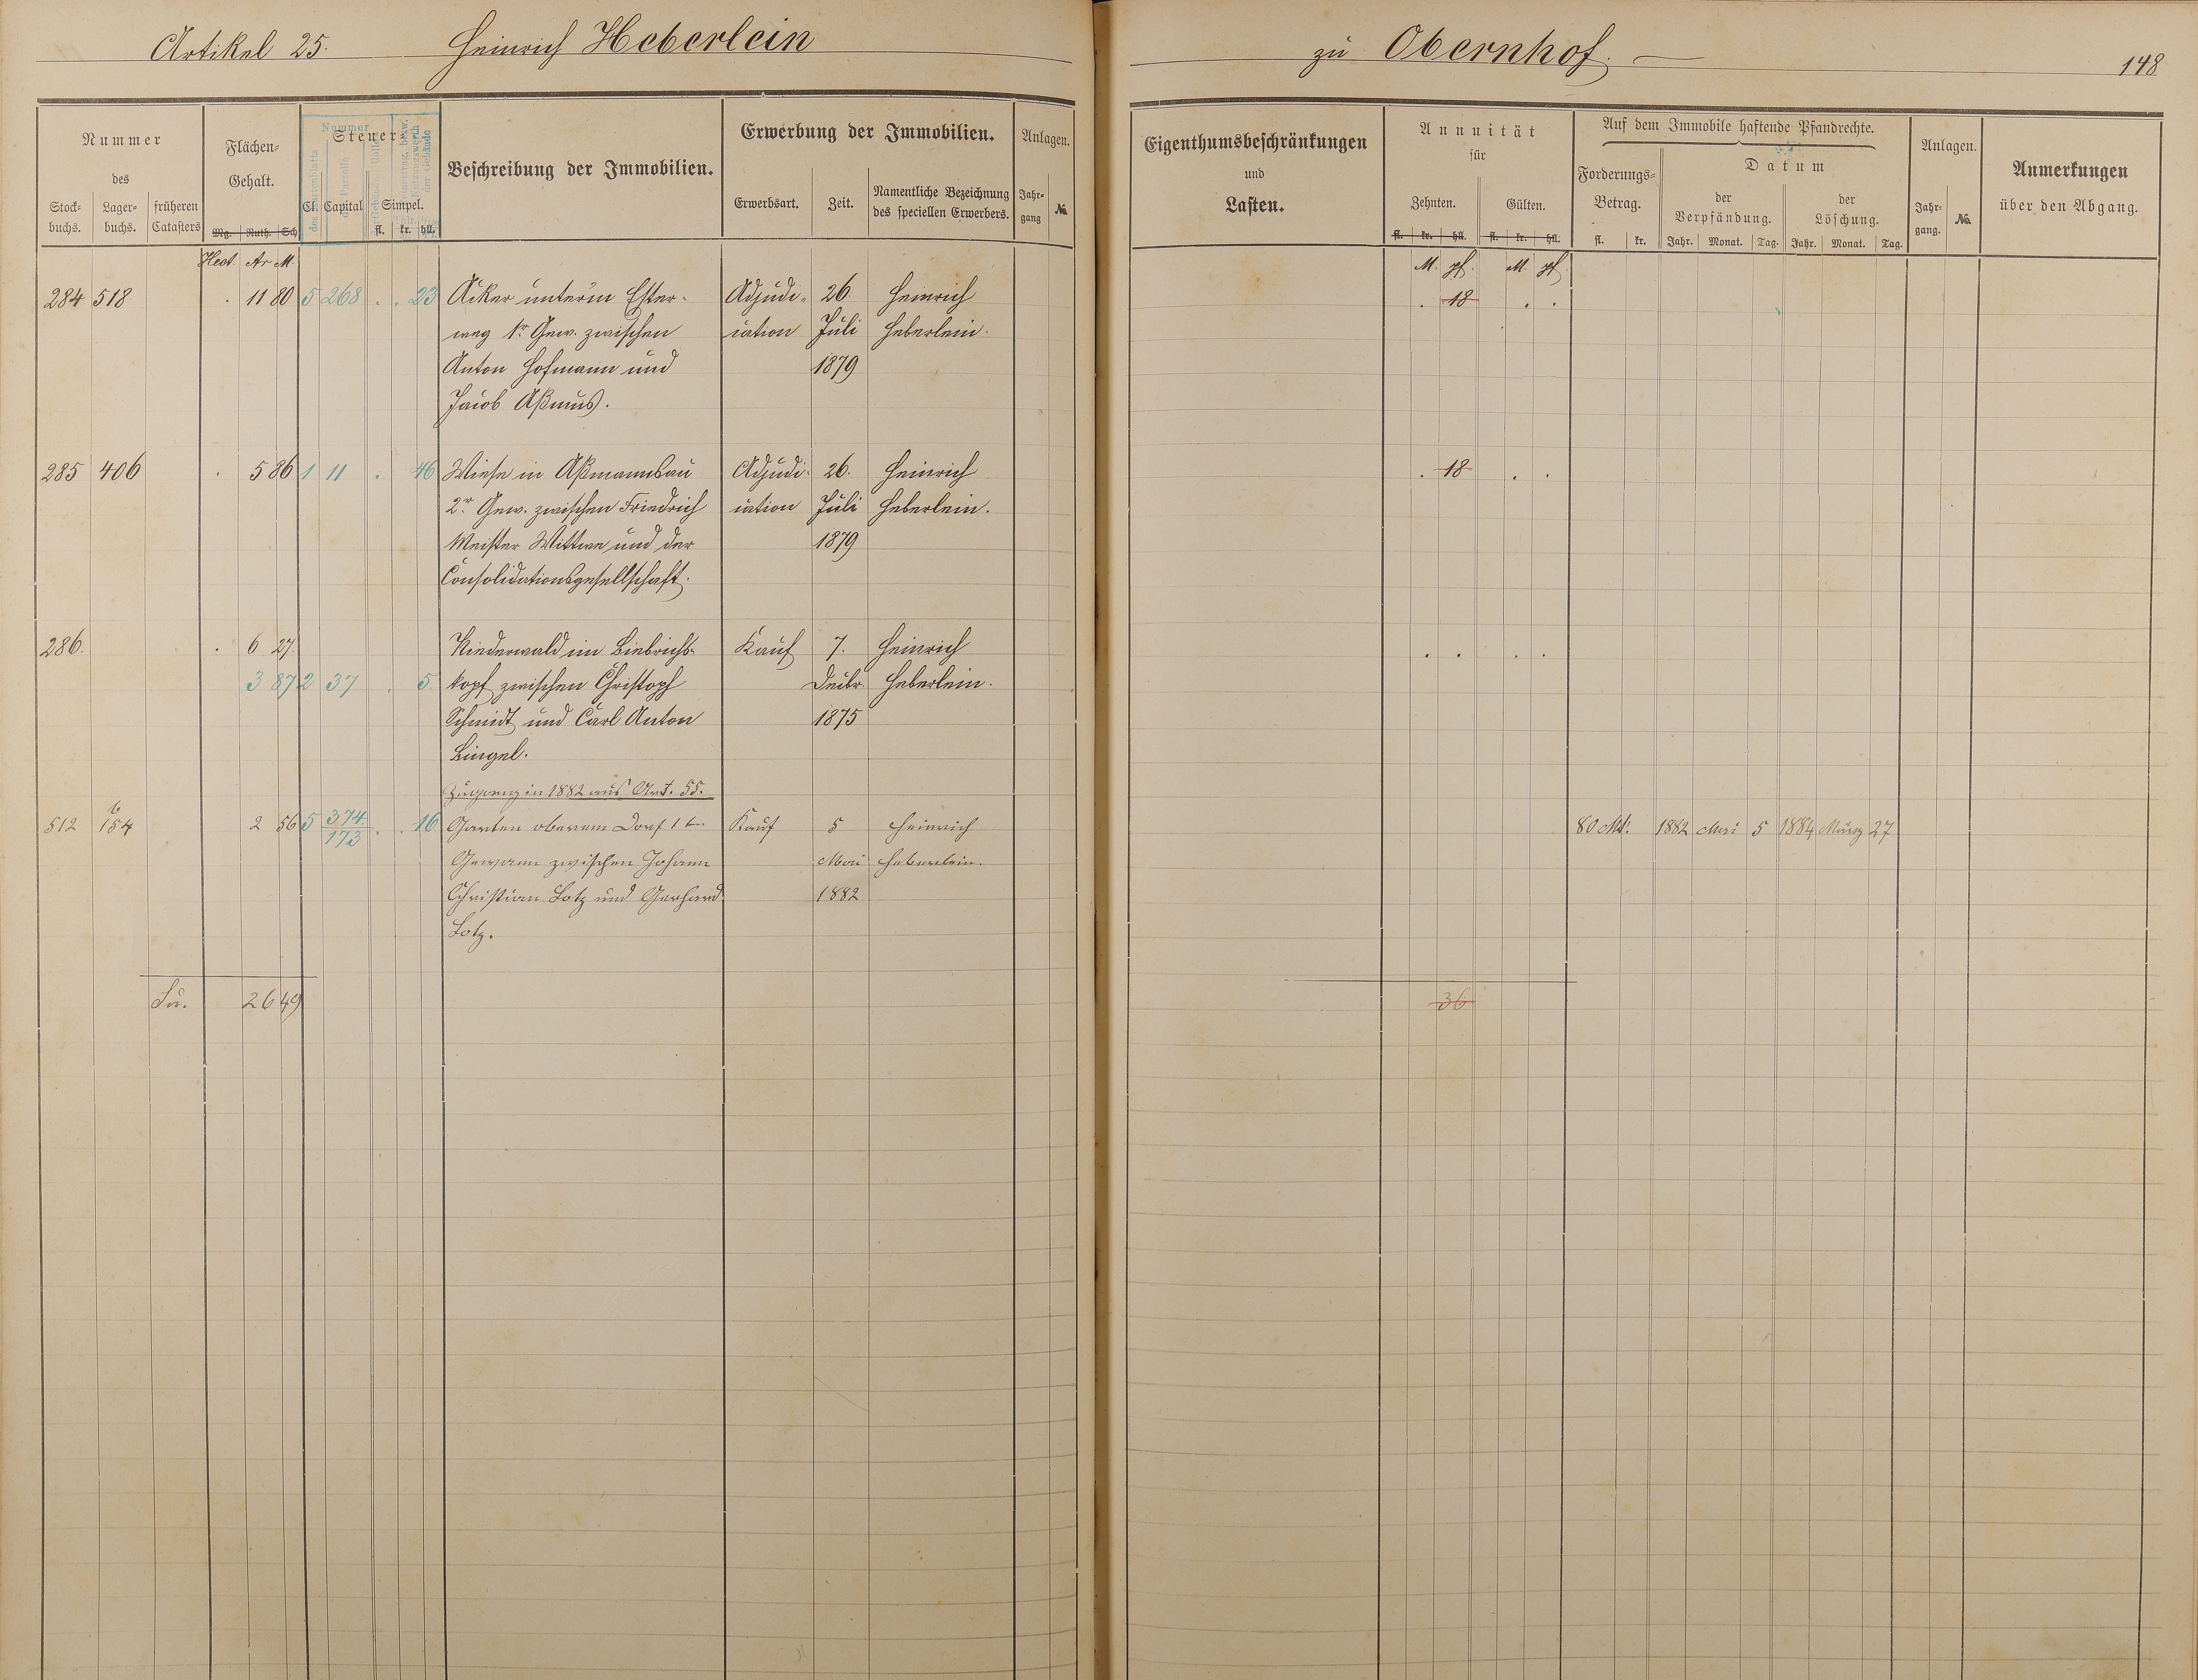 Artikel 25. Heinrich Heberlein zu Obernhof. 148
Nummer
des
Stock-buchs. Lager-buchs. früheren Catasters
Flächen-Gehalt.
Mg. Ruth. Sch
Steuer
Cl. Capital Simpel.
fl. kr. hll.
Nummer
des Kartenblatts
der Parzelle
der Gebäude
Beschreibung der Immobilien.
Erwerbung der Immobilien.
Erwerbsart. Zeit. Namentliche Bezeichnung des speciellen Erwerbers.
Anlagen.
Jahr-gang No.
Eigenthumsbeschränkungen
und
Lasten.
Annuität
für
Zehnten. Gülten.
fl. kr. hll. fl. kr. hll.
Auf dem Immobile haftende Pfandrechte.
Forderungs-Betrag.
fl. kr.
Datum
der Verpfändung. der Löschung.
Jahr. Monat. Tag. Jahr. Monat. Tag.
Anlagen.
Jahr-gang. No.
Anmerkungen
über den Abgang.
Hect. Ar M. M. pf. M. pf.
284 518 . 11 80 5 268 . . 23 Acker unter'm Ester- Adjudi- 26 Heinrich . 18 . .
weg 1r Gew. zwischen cation Juli Heberlein.
Anton Hofmann und 1879
Jacob Aßmus.
285 406 . 5 86 1 11 . 46 Wiese in Aßmannsau Adjudi- 26. Heinrich . 18 . .
2r Gew. zwischen Friedrich cation Juli Heberlein.
Meister Wittwe und der 1879
Consolidationsgesellschaft.
286. . 6 27. Niederwald im Biebrichs- Kauf 7. Heinrich . . . .
3 87 2 37 . 5 kopf zwischen Christoph Decbr. Heberlein.
Schmidt und Carl Anton 1875
Bingel.
Zugang in 1882 aus Art. 55.
512 154 b 2 56 5 374/173 . . 16 Garten oberem Dorf 1te Kauf 5 Heinrich 80 Mk. 1882 Mai 5 1884 März 27
Gewann zwischen Johann Mai Heberlein.
Christian Lotz und Gerhard 1882
Lotz.
Su. 26 49 36